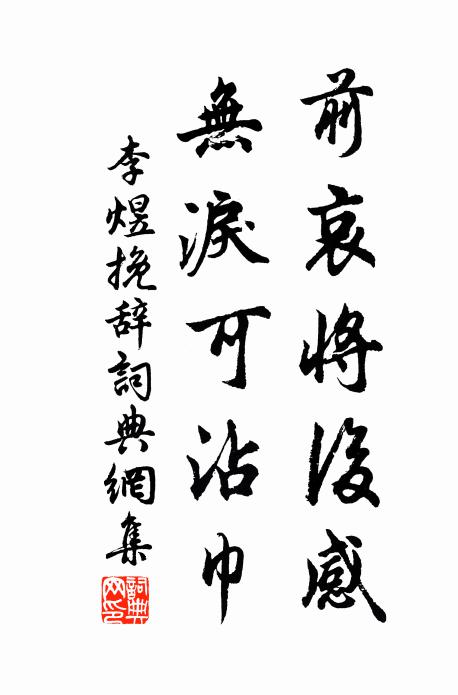 前哀將後感
無淚可沾巾
李煜挽辞詞典網集
詞典网印